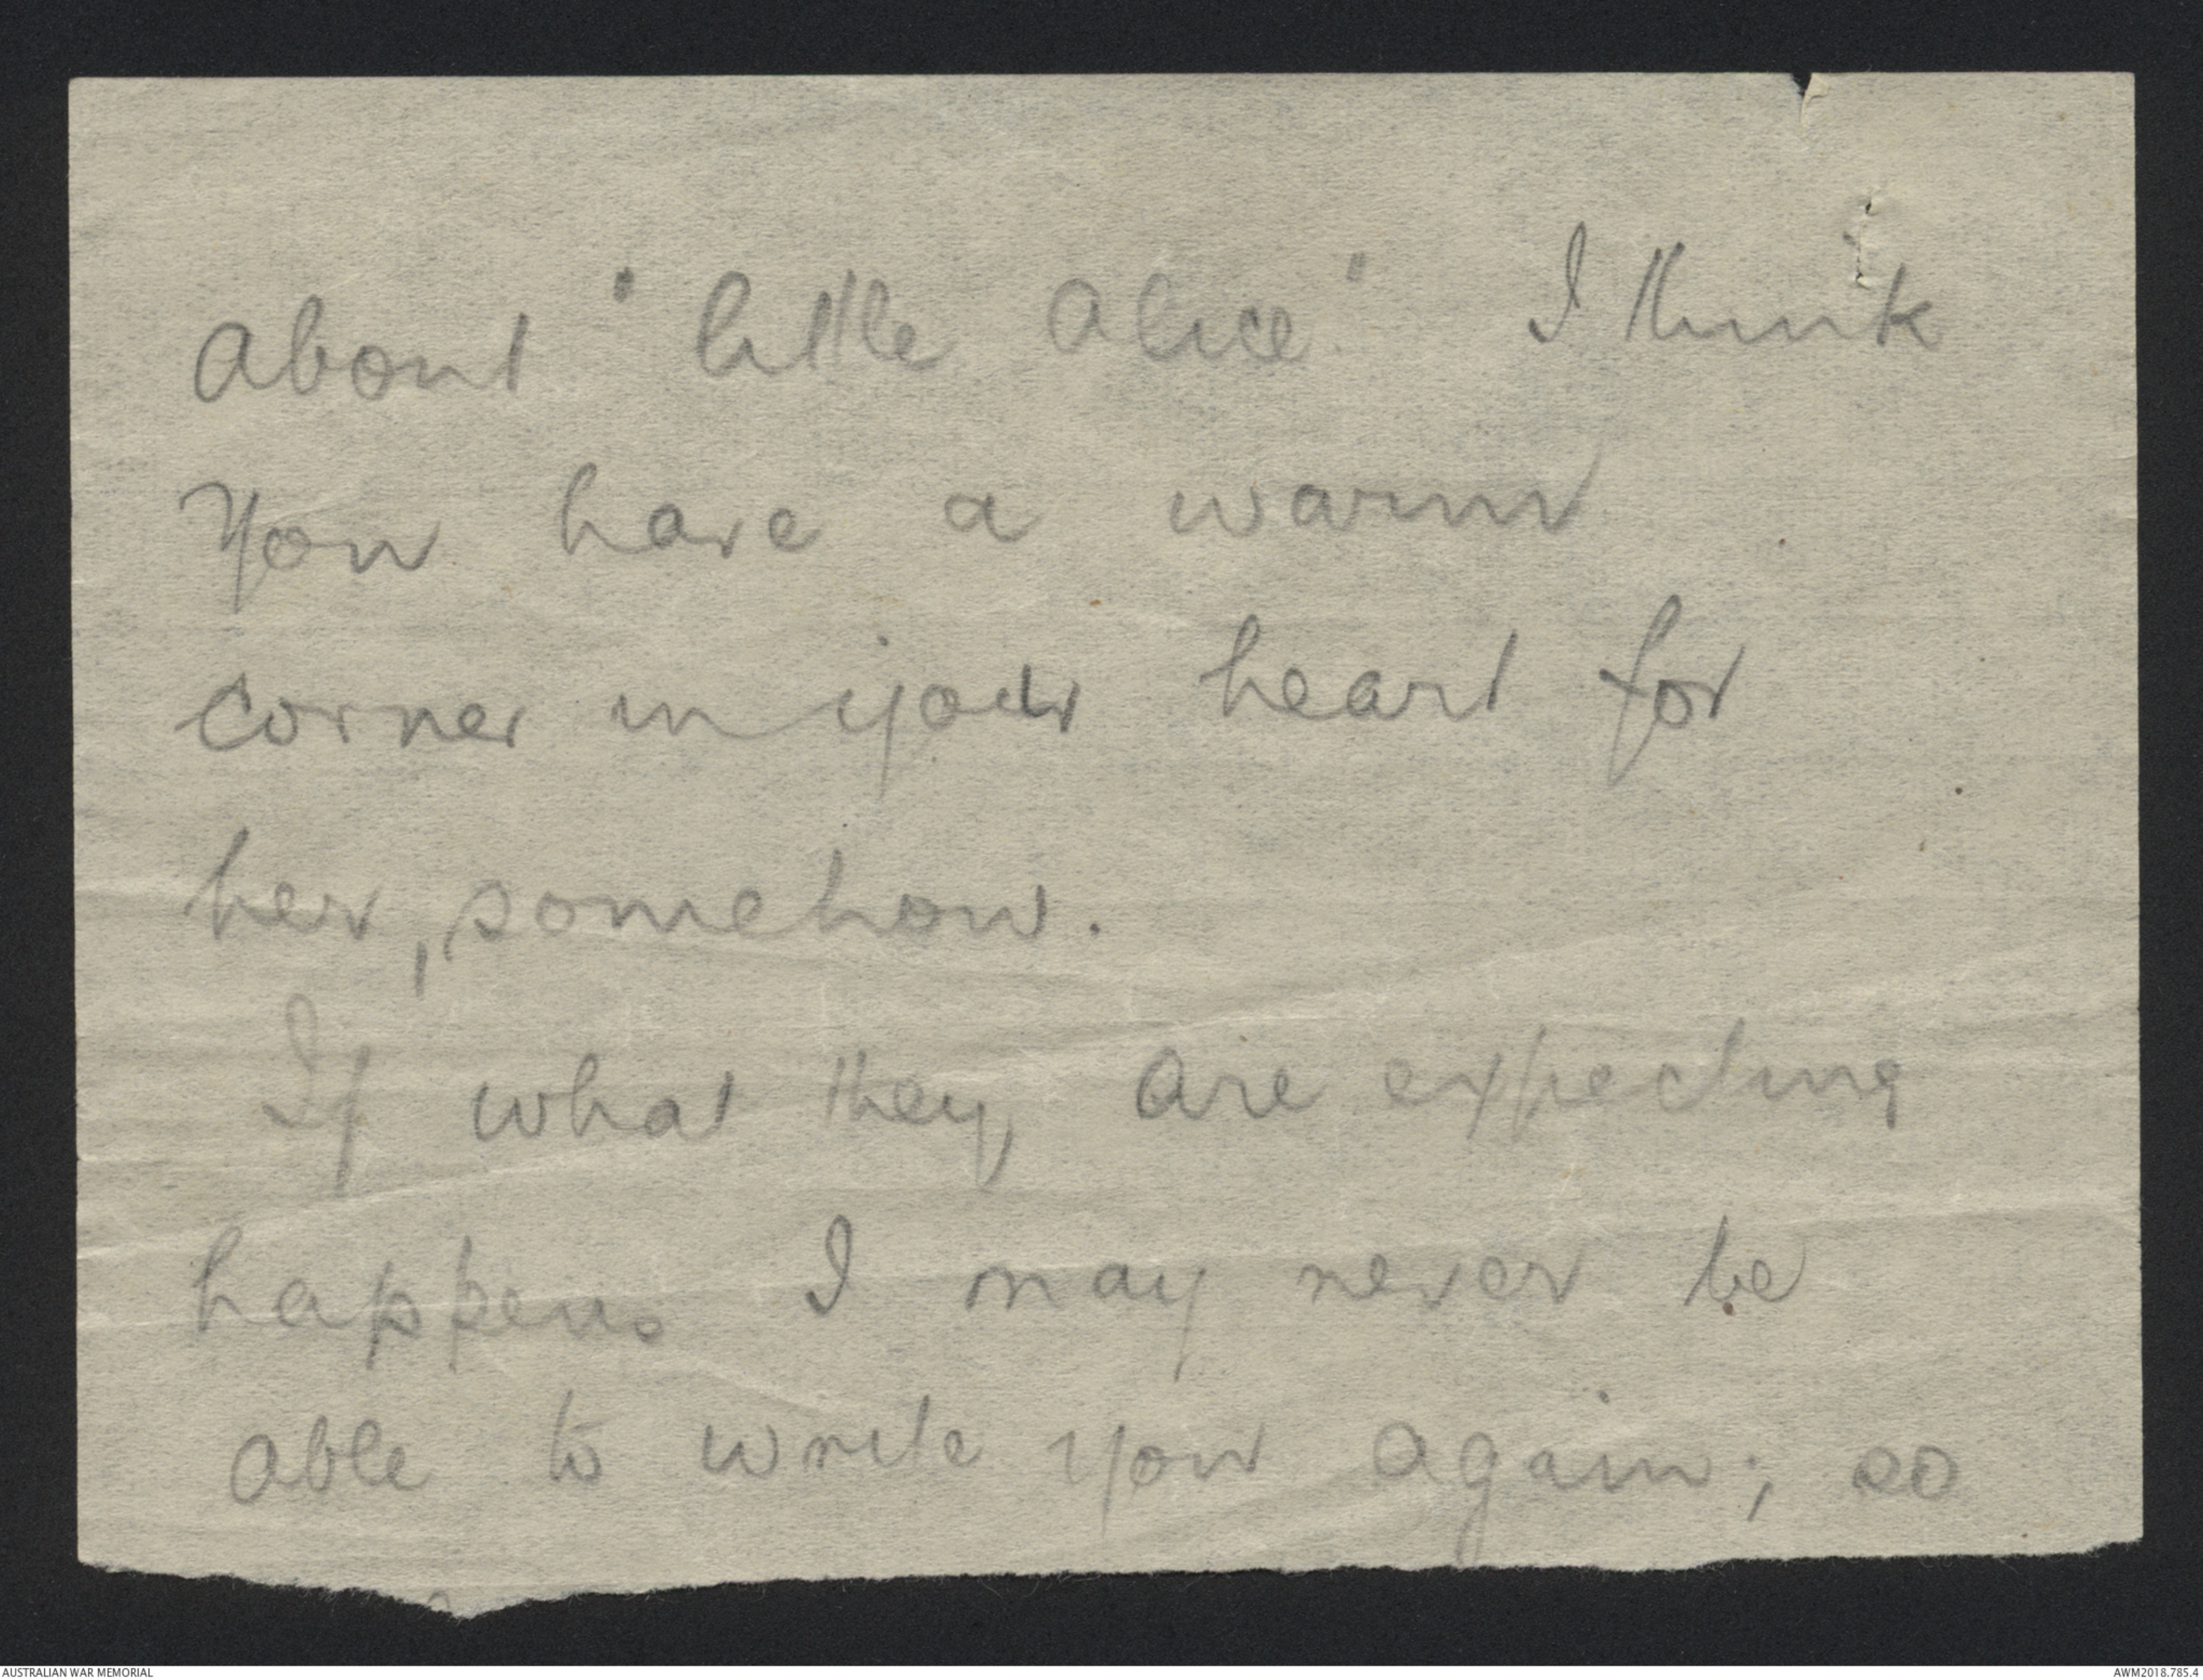 about "little Alice" I think
You have a warm
corner in your heart for
her, somehow.
If what they are expecting
happens I may never be
able to write you again; so
AUSTRALIAN WAR MEMORIAL
AWM2018.785.4